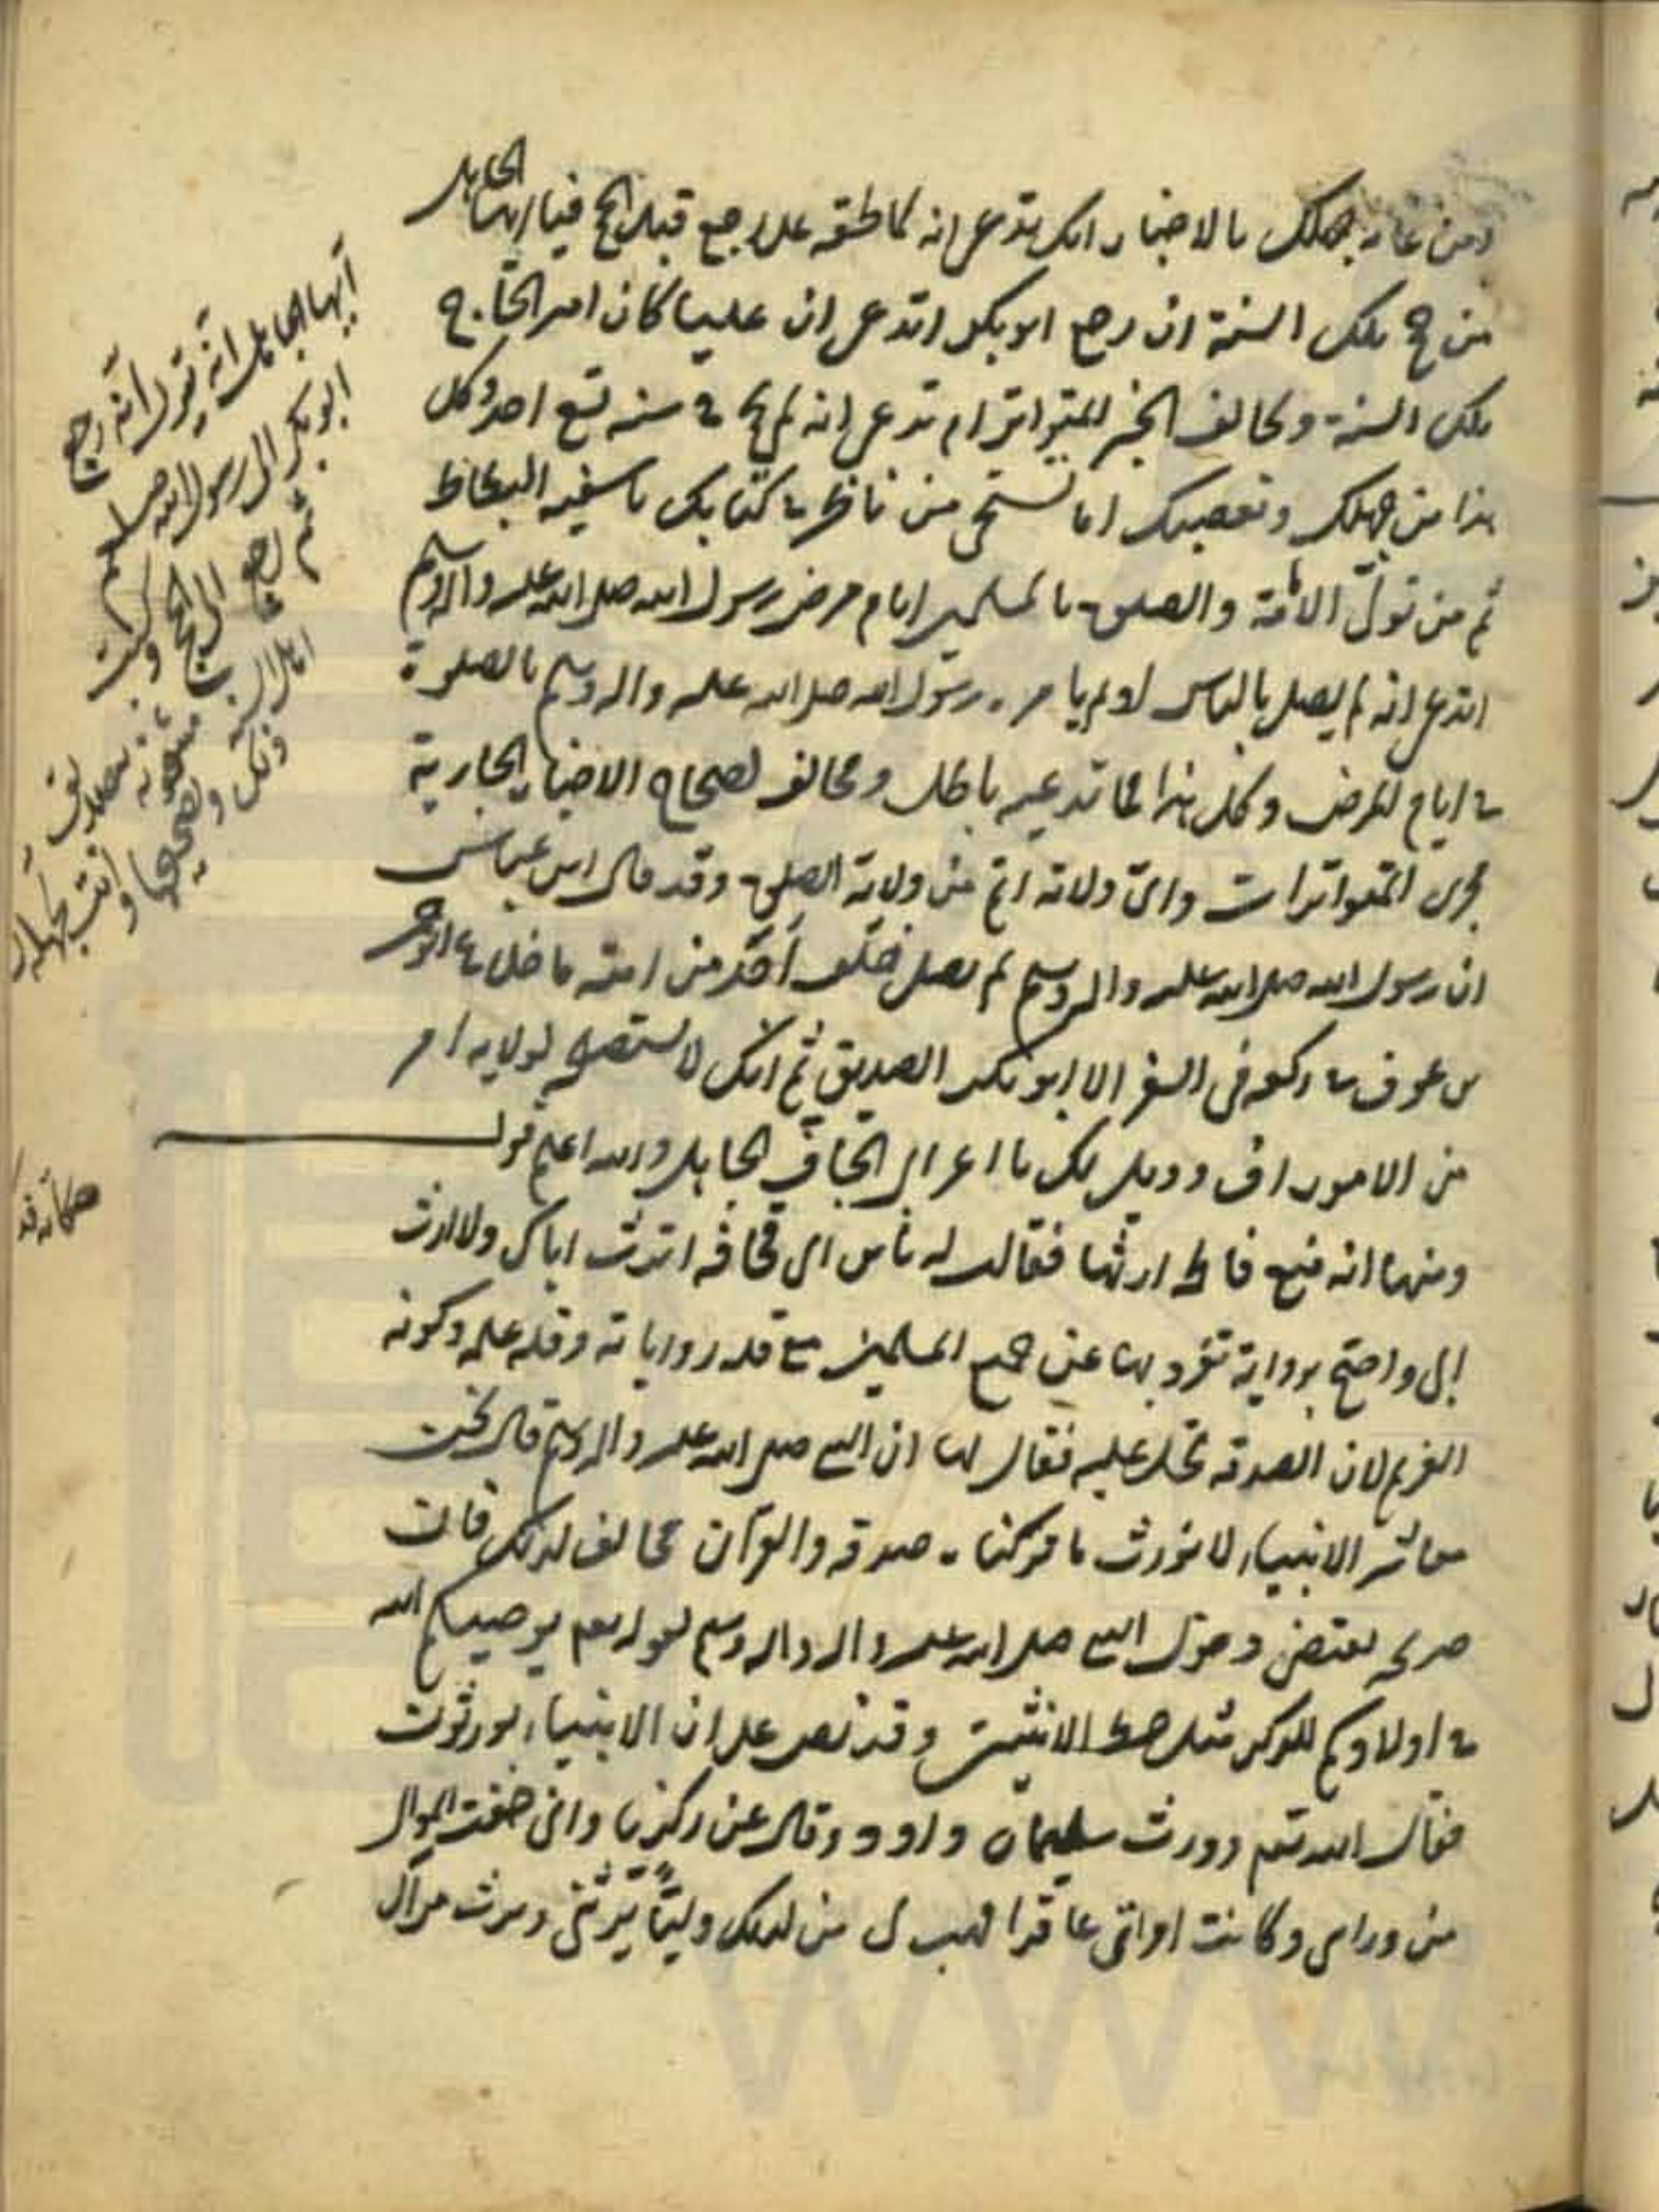 ومن غاية جهلك بالاخبار انك تدعي انه لما لحقه علي رجع قبل الحج فيا ايها الجاهل
من حج تلك السنة ان رجع ابو بكر اتدعي ان عليا كان امير الحاج
تلك السنة وتخالف الخبر المتواتر ام تدعي انه لم يحج في سنة تسع احد وكل
هذا من جهلك وتعصبك اما تستحي من ناظر في كتابك يا سفيه البطاط
ثم من تولى الامامة والصلوة بالمسلمين ايام مرض رسول الله صلى الله عليه واله وسلم
اتدعي انه لم يصل بالناس او لم يامره رسول الله صلى الله عليه واله وسلم بالصلوة
في ايام المرض وكل هذا مما تدعيه باطل ومخالف لصحاح الاخبار الجارية
مجرى المتواترات واي ولاية اتم من ولاية الصلوة وقد قال ابن عباس
ان رسول الله صلى الله عليه واله وسلم لم يصل خلف احد من امته ما خلا عبد الرحمن
بن عوف في ركعة في السفر الا ابو بكر الصديق ثم انك لا تستصلحه لولاية امر
من الامور اف وويل لك يا اعرابي الجافي الجاهل والله اعلم قوله
ومنها انه منع فاطمة ارثها فقالت له يا بن ابي قحافة اترث اباك ولا ارث
ابي واحتج برواية تفرد بها عن جميع المسلمين مع قلة رواياته وقلة علمه وكونه
الغريم لان الصدقة تحل عليه فقال لها ان النبي صلى الله عليه واله وسلم قال نحن
معاشر الانبياء لا نورث ما تركناه صدقة والقرآن مخالف لذلك فان
صريحه يقتضي دخول النبي صلى الله عليه واله واله وسلم لقوله تعم يوصيكم الله
في اولادكم للذكر مثل حظ الانثيين وقد نص على ان الانبياء يورثون
فقال الله تعم وورث سليمان داود وقال عن زكريا واني خفت الموالي
من ورائي وكانت امراتي عاقرا فهب لي من لدنك وليًّا يرثني ويرث من آل
ايها الجاهل انه تقول انه رجع
ابو بكر الى رسول الله صلعم
ثم رجع الى الحج